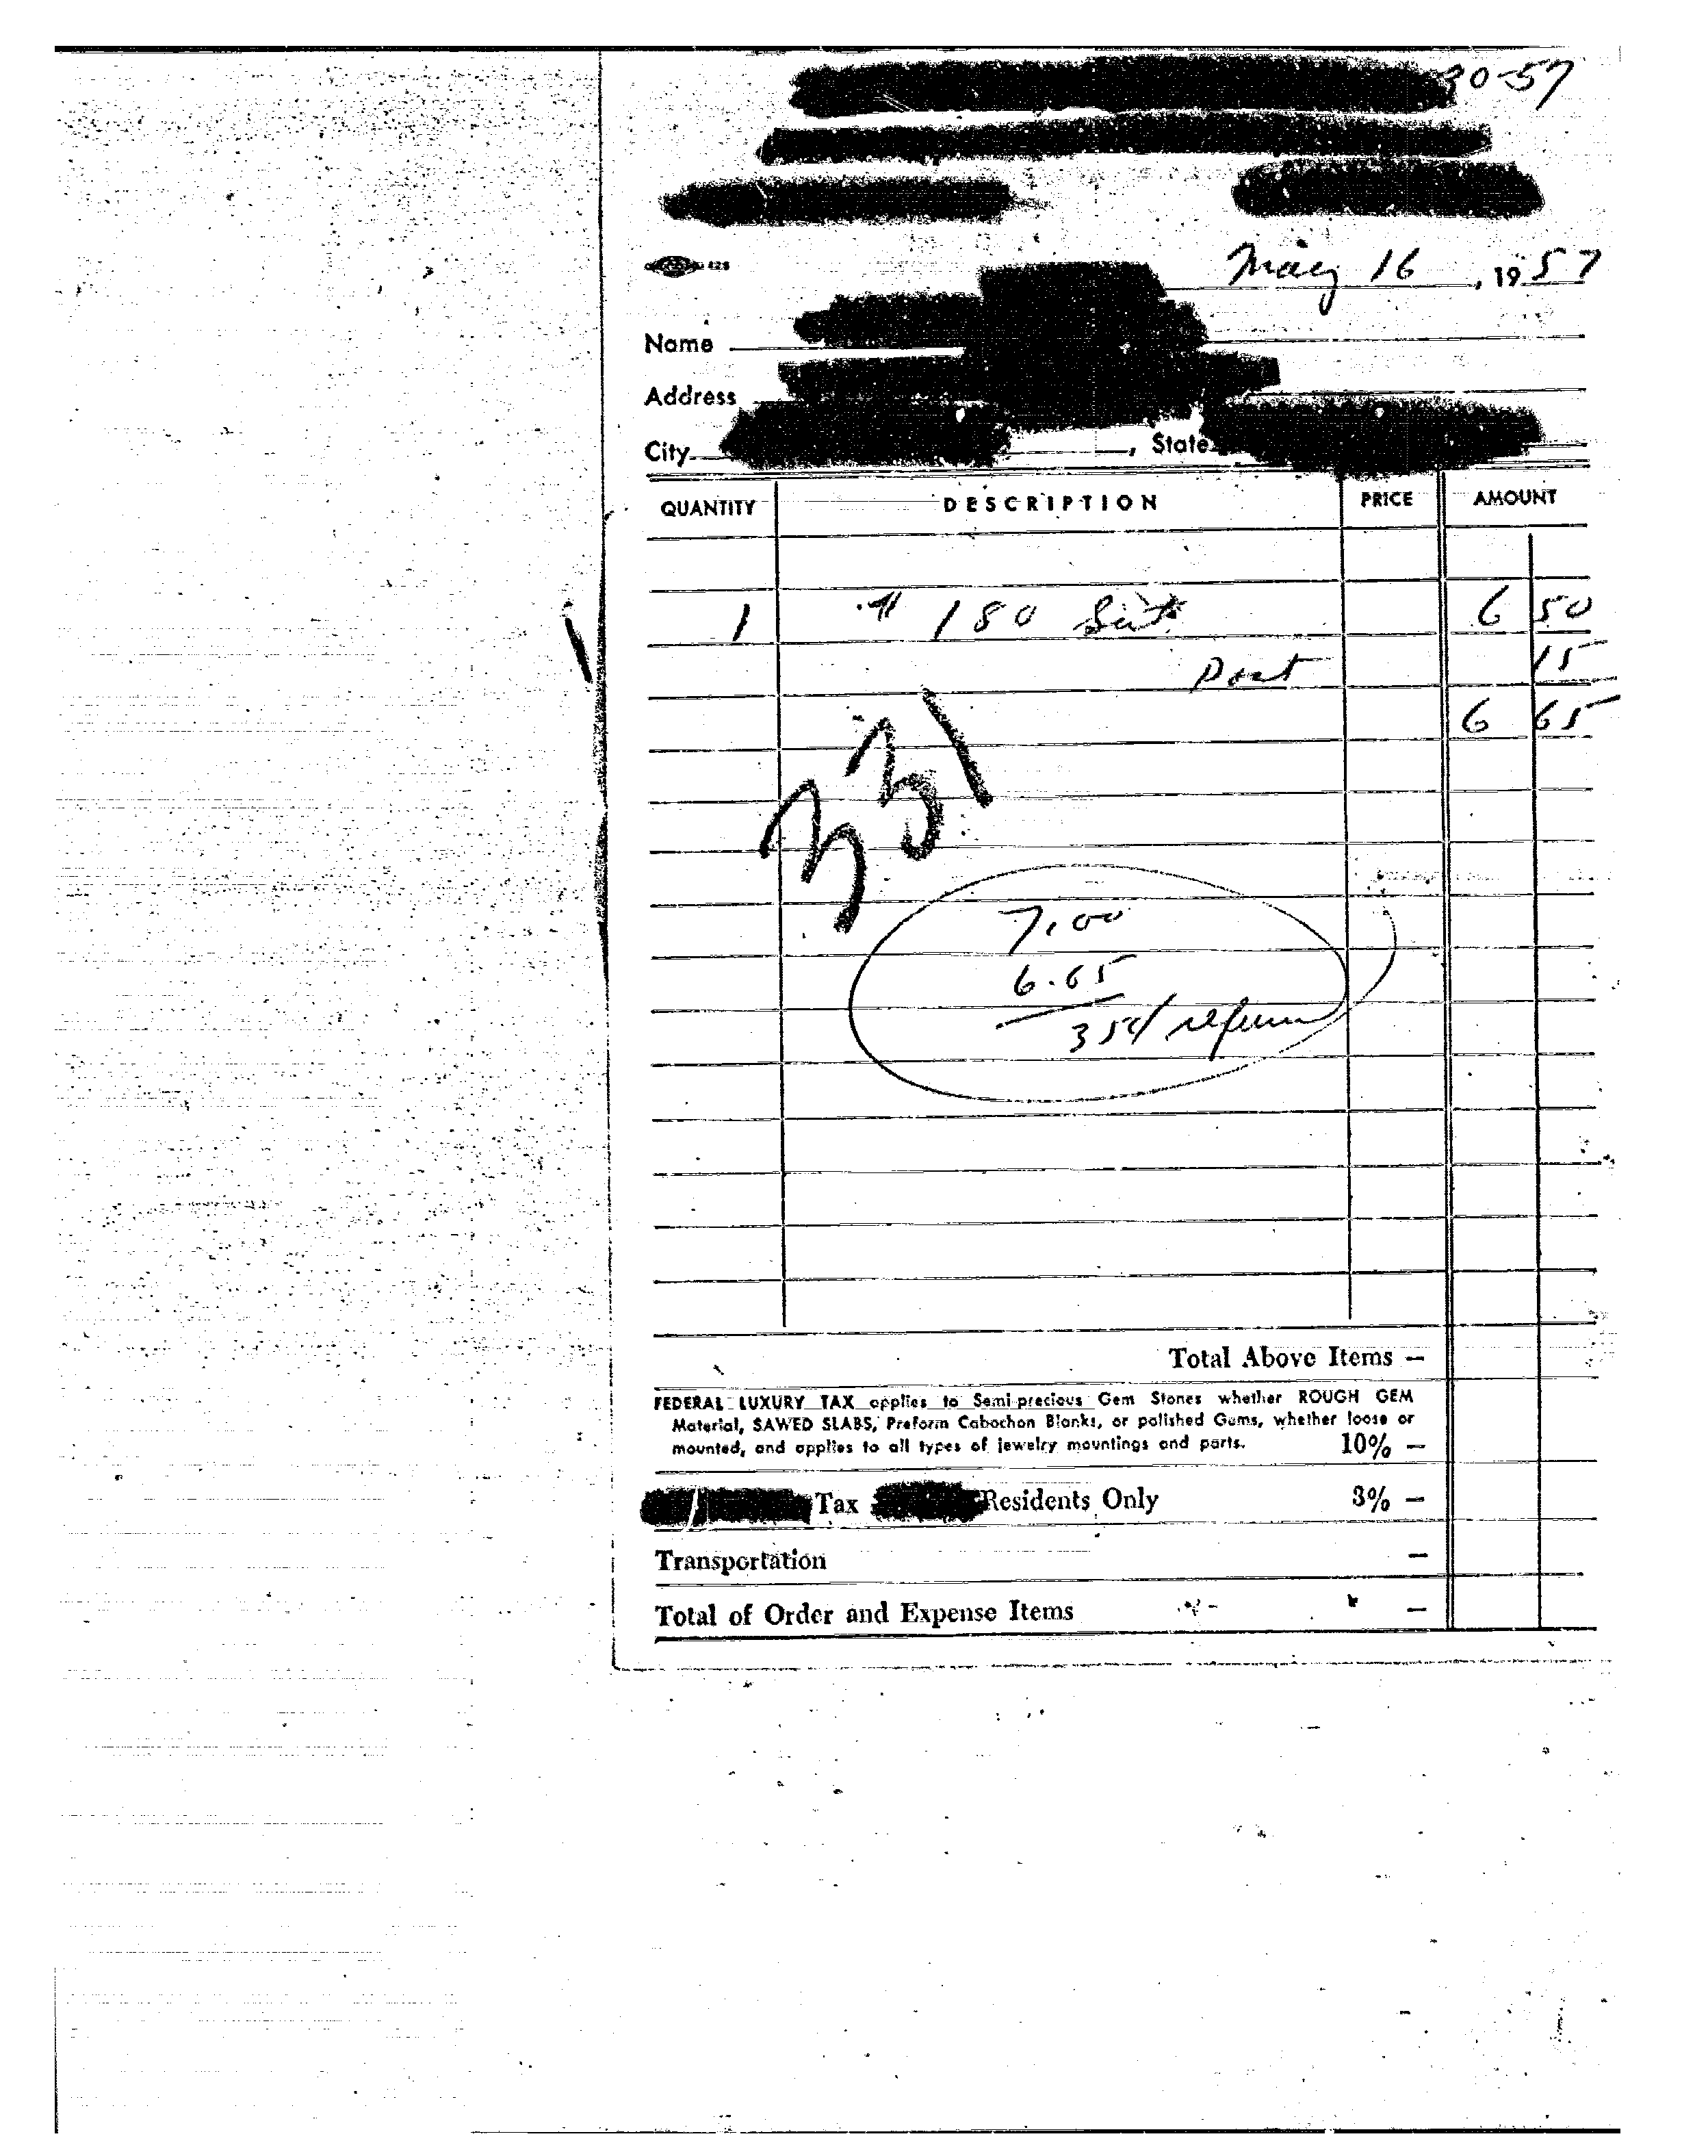 30-57
428
May 16, 1957
Name
Address
City , State
QUANTITY DESCRIPTION PRICE AMOUNT
1 # 180 6 50
Post 15
6 65
331
7.00
6.65
35¢ refund
Total Above Items —
FEDERAL LUXURY TAX applies to Semi-precious Gem Stones whether ROUGH GEM
Material, SAWED SLABS, Preform Cabochon Blanks, or polished Gems, whether loose or
mounted, and applies to all types of jewelry mountings and parts. 10% —
Tax Residents Only 3% —
Transportation —
Total of Order and Expense Items —